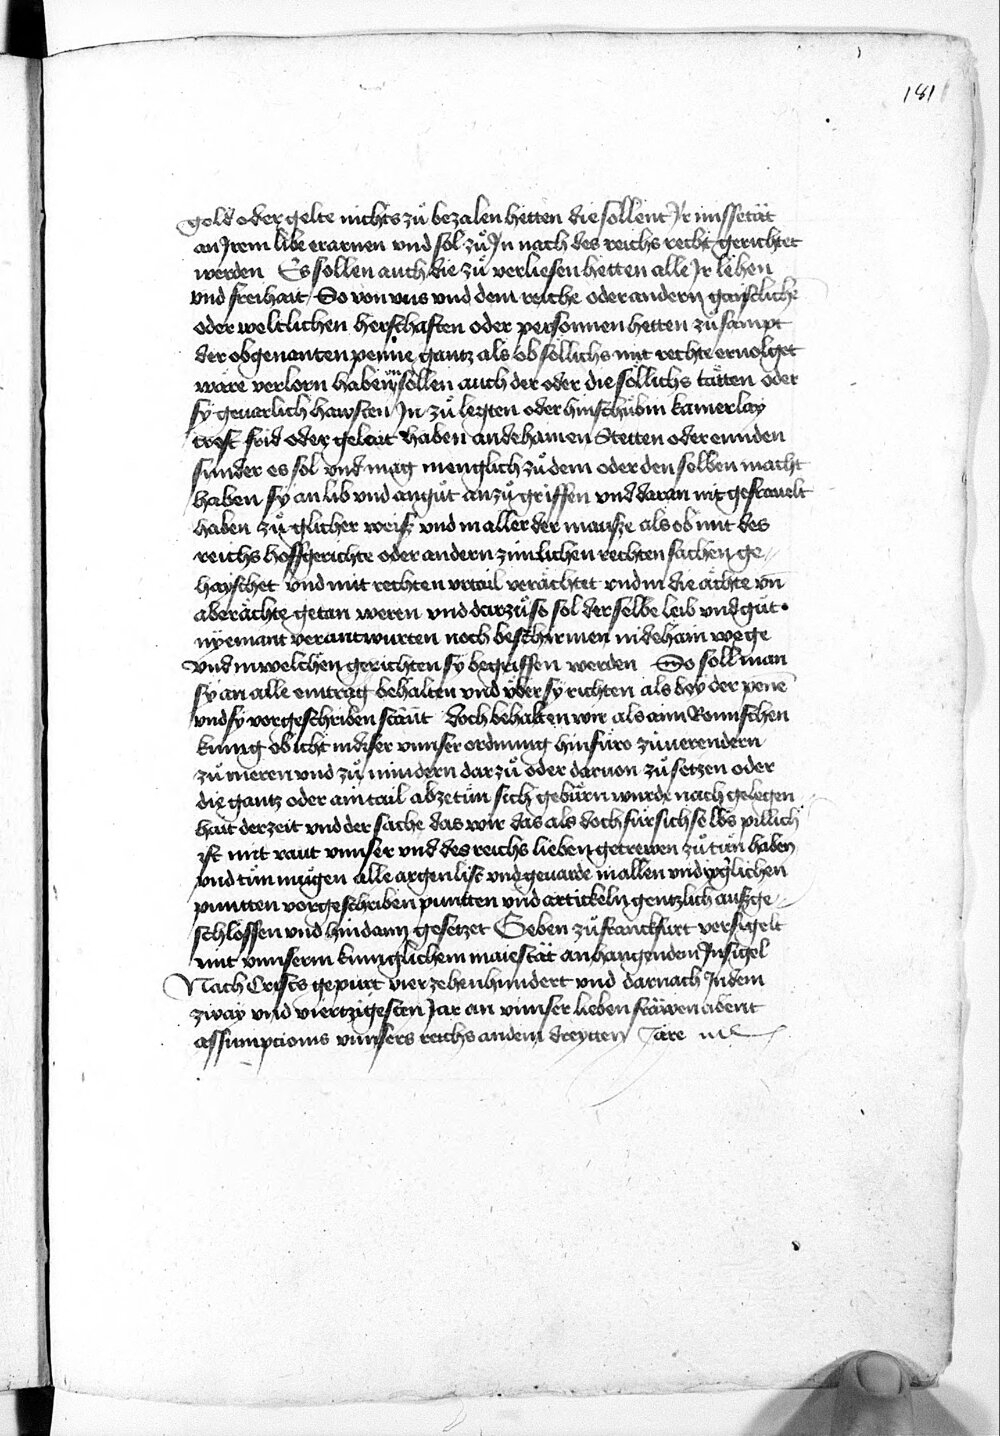 181
gold oder gelte nichts zů bezalen hetten die sollent Ir missetät
an Irem libe erarnen vnd sol zů In nach des reichs recht gerichtet
werden Es sollen auch die zů verliesen hetten alle Ir lehen
vnd freihait So von vns vnd dem reiche oder andern gaistliche
oder weltlichen herschaften oder personnen hetten zů sampt
der obgenanten penne gantz als ob söllichs mit rechte eruolget
wäre verlorn haben vn sollen auch der oder die söllichs tätten oder
sy geuarlich hawsten In zů legten oder hinschübin kamerlay
trost frid oder gelait haben an dehainen Stetten oder ennden
sunder es sol vnd mag menglich zů dem oder den selben macht
haben sy an lib vnd an gůt anzů griffen vnd daran nit gefrauelt
haben zů glicher weisz vnd in aller der mausze als ob mit des
reichs hoffgerichte oder andern zimlichen rechten sachen ge
hayschet vnd mit rechten vrtail verächtet vnd in die ächte vn̄
aberächte getan weren vnd darzů so sol der selbe leib vnd gůt
nyemant verantwurten noch beschirmen in dehain wege
vnd in welchen gerichten sy begriffen werden So soll man
sy an alle eintrag behalten vnd vber sy richten als bey der penē
vnd sy vorgeschriben staūt doch behalten wir als ain Romischen
kunig ob icht in diser vnnser ordnung hinfüro zůuerendern
zů meren vnd zů mindern darzů oder daruon zů setzen oder
die gantz oder ain tail abzetůn sich gebůrn wurde nach gelegen
hait der zeit vnd der sache das wir das als doch für sich selbs pillich
ist mit raut vnnser vnd des reichs lieben getrewen zů tůn haben
vnd tůn mügen alle argenlist vnd geuarde in allen vnd yglichen
puntten vorgeschriben puntten vnd artickeln gentzlich auszge
schlossen vnd hindann gesetzet Geben zů franckfurt versigelt
mit vnnserm kuniglichem maiestät anhangendem Insigel
Nach Crists gepurt vierzehenhundert vnd darnach Indem
zway vnd viertzigesten Jar an vnnser lieben fräwen abent
assumpcionis vnnsers reichs an dem dreytten Jare